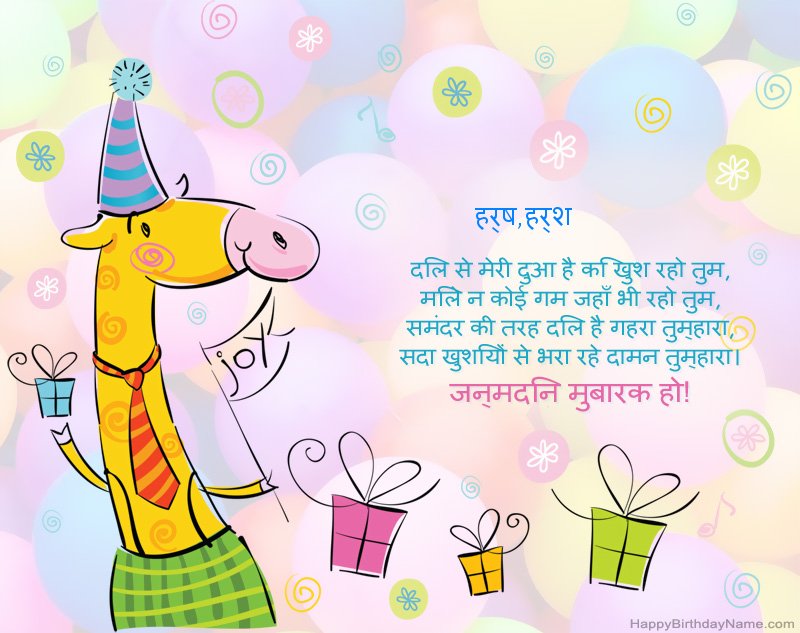 हर्ष,हर्श
दिल से मेरी दुआ है कि खुश रहो तुम,
मिले न कोई गम जहाँ भी रहो तुम,
समंदर की तरह दिल है गहरा तुम्हारा,
सदा खुशियों से भरा रहे दामन तुम्हारा।
जन्मदिन मुबारक हो!
joy
HappyBirthdayName.com